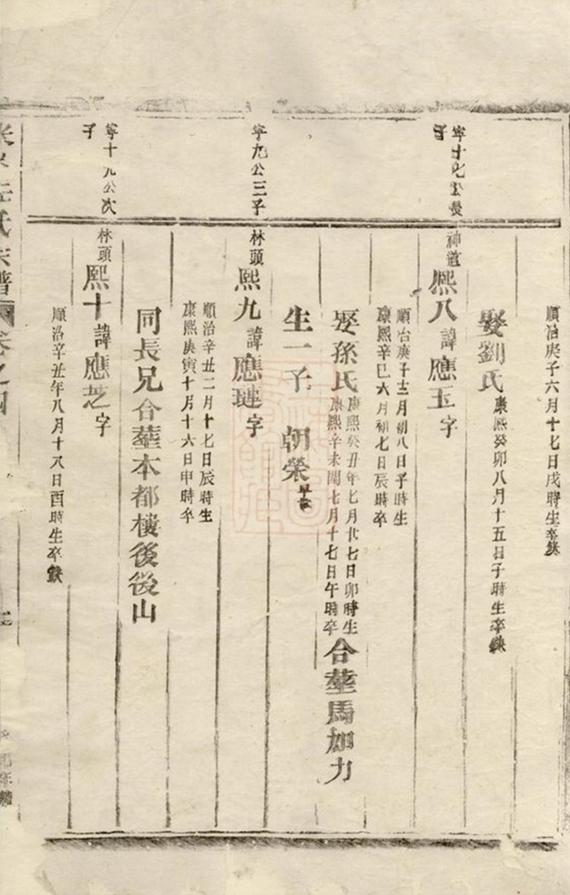 順治庚子六月十七日戌時生卒缺
娶劉氏
康熙癸卯八月十五日子時生卒缺
寧十七公長
子
神道
熙八諱應玉字
順治庚子十二月初八日子時生
康熙辛巳六月初七日辰時卒
娶孫氏
康熙癸丑年七月廿七日卯時生
康熙辛未閏七月十七日午時卒
合塟馬加力
生一子 朝榮
寧九公三子
林頭
熙九諱應璉字
順治辛丑二月十七日辰時生
康熙庚寅十月十六日申時卒
同長兄合塟本都樓後後山
寧十九公次
子
林頭
熙十諱應芝字
順治辛丑年八月十八日酉時生卒缺
氏宗譜
卷之四